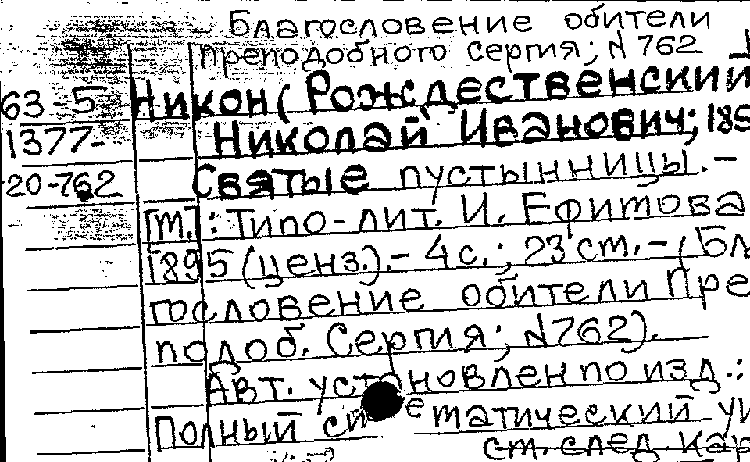 Благословение обители
преподобного Сергия; N 762
63-5 Никон (Рождественский
1377- Николай Иванович; 185
20-762 Святые пустынницы. -
[М.]: Типо-лит. И. Ефимова
1895 (ценз.). - 4 с.; 23 см. - (Бла
гословение обители Пре
подоб. Сергия; N762).
Авт. установлен по изд.:
Полный систематический ук
см. след. кар